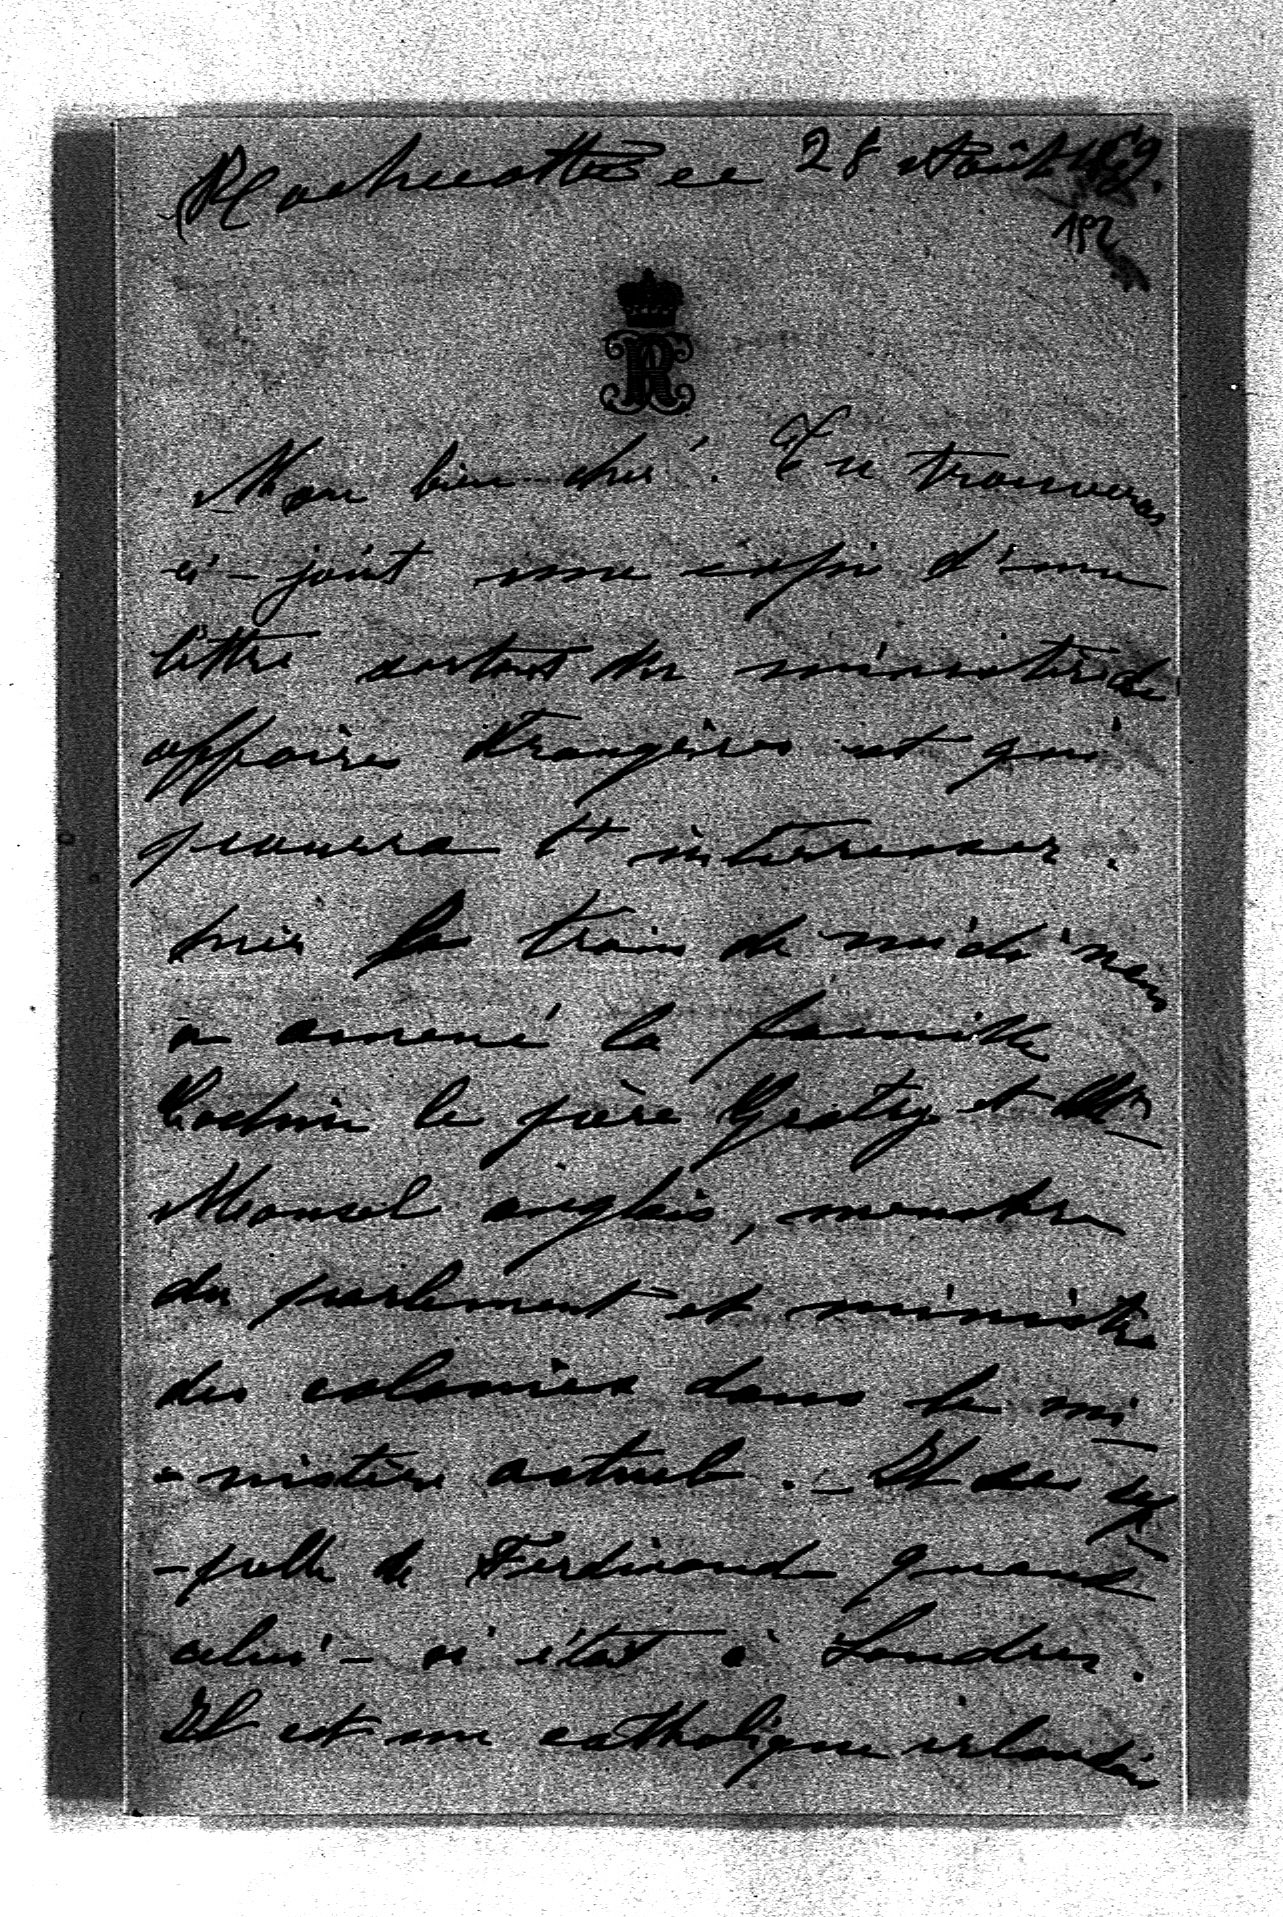 Rochecotte ce 28 Août 69.
152
R
Mon bien cher! Tu trouveras
ci-joint une copie d'une
lettre sortant du ministère des
affaires étrangères et qui
pourra t'interresser.
hier le train de midi nous
a amené la famille
Cochin le père Gratry et Mr
Monsel anglais, membre
du parlement et ministre
des colonies dans le mi
-nistère actuel. - Il se rap
-pelle de Ferdinand quand
celui-ci était à Londres.
Il est un catholique irlandais